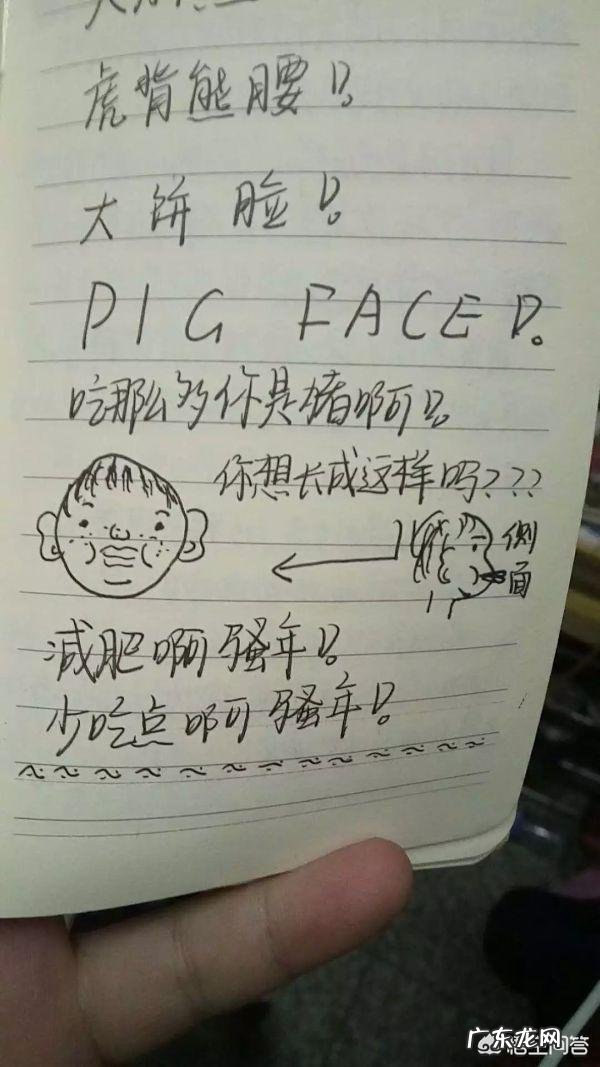 虎背熊腰!
大饼脸!
PIG FACE!
吃那么多你是猪啊!
你想长成这样吗???
侧面
减肥啊骚年!
少吃点啊骚年!
广东龙网
悟空问答